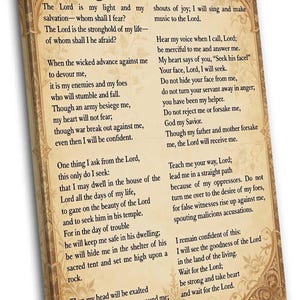 The Lord is my light and my
salvation— whom shall I fear?
The Lord is the stronghold of my life—
of whom shall I be afraid?
When the wicked advance against me
to devour me,
it is my enemies and my foes
who will stumble and fall.
Though an army besiege me,
my heart will not fear;
though war break out against me,
even then I will be confident.
One thing I ask from the Lord,
this only do I seek:
that I may dwell in the house of the
Lord all the days of my life,
to gaze on the beauty of the Lord
and to seek him in his temple.
For in the day of trouble
he will keep me safe in his dwelling;
he will hide me in the shelter of his
sacred tent and set me high upon a
rock.
my head will be exalted
me;
shouts of joy; I will sing and make
music to the Lord.
Hear my voice when I call, Lord;
be merciful to me and answer me.
My heart says of you, "Seek his face!"
Your face, Lord, I will seek.
Do not hide your face from me,
do not turn your servant away in anger;
you have been my helper.
Do not reject me or forsake me,
God my Savior.
Though my father and mother forsake
me, the Lord will receive me.
Teach me your way, Lord;
lead me in a straight path
because of my oppressors. Do not
turn me over to the desire of my foes,
for false witnesses rise up against me,
spouting malicious accusations.
I remain confident of this:
I will see the goodness of the Lord
in the land of the living.
Wait for the Lord;
be strong and take heart
and wait for the Lord.